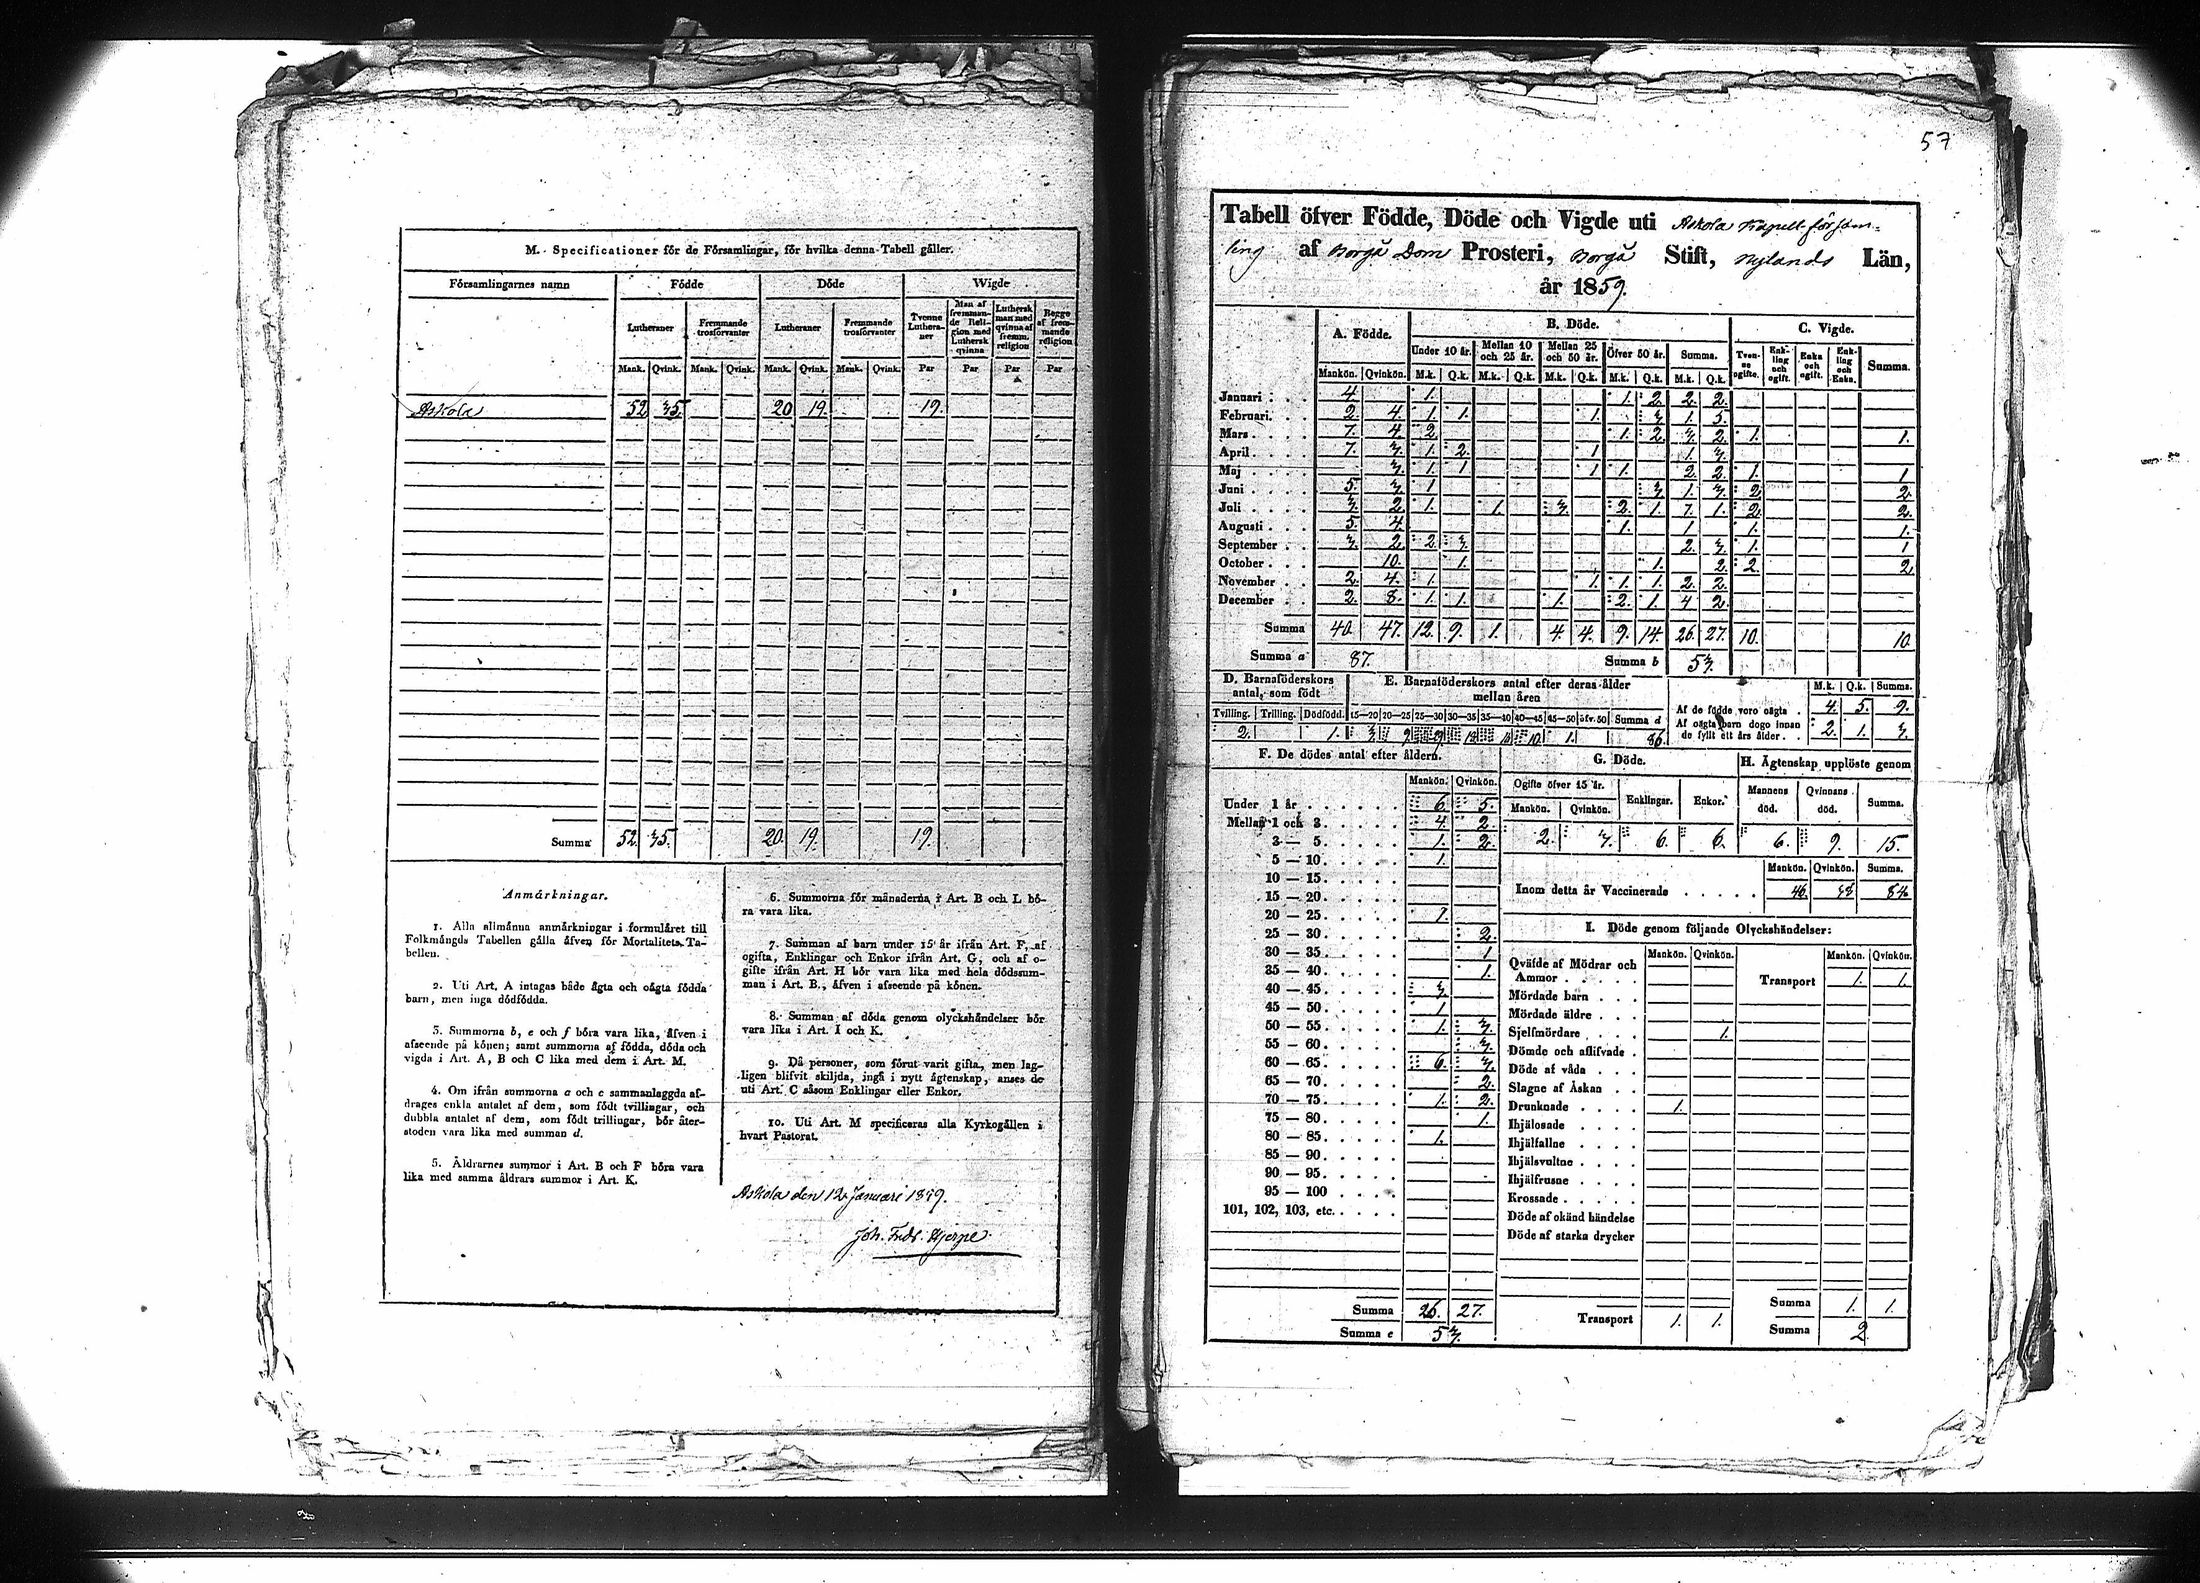 M. Specificationer för de Församlingar, för hvilka denna Tabell gäller.
Församlingarnes namn Födde Döde Wigde
Lutheraner Fremmande trosförvanter Lutheraner Fremmande trosförvanter Tvenne Lutheraner Man af fremmande Religion med Luthersk qvinna Luthersk man med qvinna af fremm. religion Begge af fremmande religion
Mank. Qvink. Mank. Qvink. Mank. Qvink. Mank. Qvink. Par Par Par Par
Askola 52 35. 20 19. 19.
Summa 52 35. 20. 19. 19.
Anmärkningar.
1. Alla allmänna anmärkningar i formuläret till
Folkmängds Tabellen gälla äfven för Mortalitets Ta-
bellen.
2. Uti Art. A intagas både ägta och oägta födda
barn, men inga dödfödda.
3. Summorna b, e och f böra vara lika, äfven i
afseende på könen; samt summorna af födda, döda och
vigda i Art. A, B och C lika med dem i Art. M.
4. Om ifrån summorna a och c sammanlaggda af-
drages enkla antalet af dem, som födt tvillingar, och
dubbla antalet af dem, som födt trillingar, bör åter-
stoden vara lika med summan d.
5. Åldrarnes summor i Art. B och F böra vara
lika med samma åldrars summor i Art. K.
6. Summorna för månaderna i Art. B och L bö-
ra vara lika.
7. Summan af barn under 15 år ifrån Art. F, af
ogifta, Enklingar och Enkor ifrån Art. G, och af o-
gifte ifrån Art. H bör vara lika med hela dödssum-
man i Art. B., äfven i afseende på könen.
8. Summan af döda genom olyckshändelser bör
vara lika i Art. I och K.
9. Då personer, som förut varit gifta, men lag-
ligen blifvit skiljda, ingå i nytt ägtenskap, anses de
uti Art. C såsom Enklingar eller Enkor.
10. Uti Art. M specificeras alla Kyrkogällen i
hvart Pastorat.
Askola den 12 Januari
Joh. Fredr. Hjerpe.
57
Tabell öfver Födde, Döde och Vigde uti Askola Kapell-försam-
ling af Borgå Dom Prosteri, Borgå Stift, Nylands Län,
år 1859.
A. Födde. B. Döde. C. Vigde.
Under 10 år. Mellan 10 och 25 år. Mellan 25 och 50 år. Öfver 50 år. Summa. Tvenne ogifte. Enkling och ogift. Enka och ogift. Enkling och Enka. Summa.
Mankön. Qvinkön. M.k. Q.k. M.k. Q.k. M.k. Q.k. M.k. Q.k. M.k. Q.k.
Januari 4 1. 1. 2. 2. 2.
Februari 2. 4. 1. 1. 1. 3. 1. 5.
Mars 7. 4. 2. 1. 2. 3. 2. 1. 1.
April 7. 3. 1. 2. 1. 1. 3.
Maj 3. 1. 1 1 1. 2. 2. 1. 1
Juni 5. 3. 1 3. 1. 3. 2. 2.
Juli 3. 2. 1. 1. 3. 2. 1. 7. 1. 2. 2.
Augusti 5. 4. 1. 1. 1. 1.
September 3. 2. 2. 3. 2. 3. 1. 1
October 10. 1. 1. 2. 2. 2.
November 2. 4. 1. 1. 1. 1. 2. 2.
December 2. 8. 1. 1. 1. 2. 1. 4 2.
Summa 40. 47. 12. 9. 1. 4. 4. 9. 14. 26. 27. 10. 10.
Summa a 87. Summa b 53.
D. Barnaföderskors antal, som födt
E. Barnaföderskors antal efter deras ålder mellan åren
Tvilling. Trilling. Dödfödd. 15—20 20—25 25—30 30—35 35—40 40—45 45—50 öfv. 50 Summa d
2. 1. 10. 1. 86.
M.k. Q.k. Summa.
Af de födde voro oägta 4. 5. 9.
Af oägta barn dogo innan
de fyllt ett års ålder 2. 1. 3.
F. De dödes antal efter åldern.
Mankön. Qvinkön.
Under 1 år 6. 5.
Mellan 1 och 3 4. 2.
3 — 5 1. 2.
5 — 10 1.
10 — 15
15 — 20
20 — 25 1.
25 — 30 2.
30 — 35 1
35 — 40 1.
40 — 45 3.
45 — 50 1
50 — 55 1. 3.
55 — 60 3.
60 — 65 6. 3.
65 — 70 2.
70 — 75 1. 2.
75 — 80 1.
80 — 85 1.
85 — 90
90 — 95
95 — 100
101, 102, 103, etc.
Summa 26. 27.
Summa e 53.
G. Döde.
Ogifte öfver 15 år. Enklingar. Enkor.
Mankön. Qvinkön.
2. 3. 6. 6.
H. Ägtenskap upplöste genom
Mannens död. Qvinnans död. Summa.
6. 9. 15.
Mankön. Qvinkön. Summa.
Inom detta år Vaccinerade 46.
I. Döde genom följande Olyckshändelser:
Mankön. Qvinkön. Mankön. Qvinkön.
Qväfde af Mödrar och
Ammor Transport 1. 1.
Mördade barn
Mördade äldre
Sjelfmördare 1.
Dömde och aflifvade
Döde af våda
Slagne af Åskan
Drunknade 1.
Ihjälosade
Ihjälfallne
Ihjälsvultne
Ihjälfrusne
Krossade
Döde af okänd händelse
Döde af starka drycker
Transport 1. 1. Summa 1. 1.
Summa 2